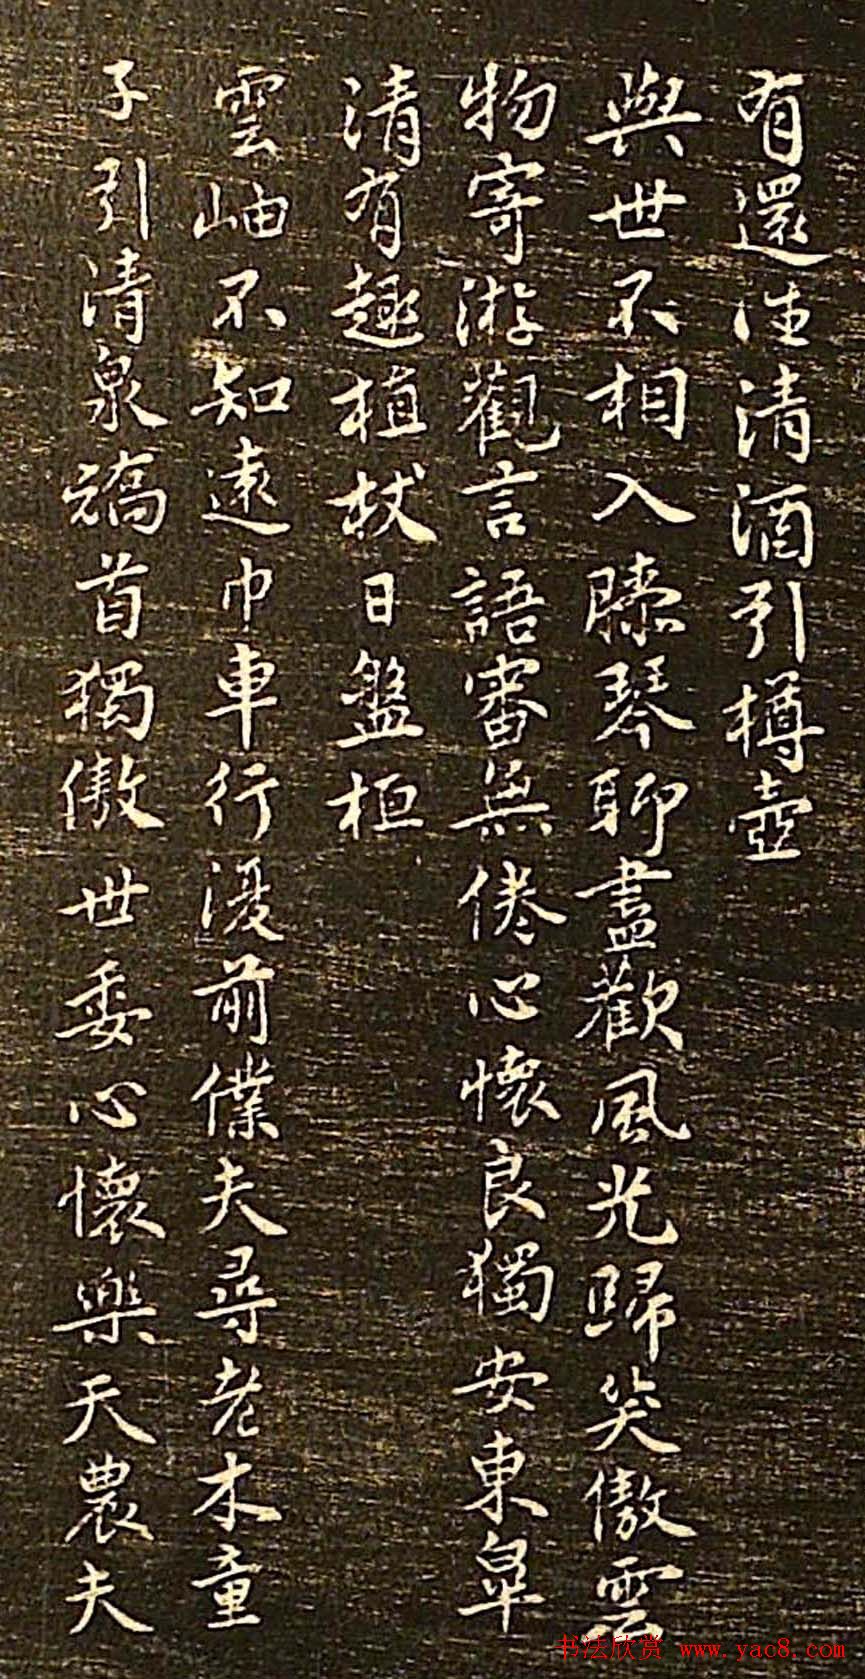 有還往清酒引樽壺
與世不相入膝琴聊盡歡風光歸笑傲雲
物寄游觀言語審無倦心懷良獨安東皋
清有趣植杖日盤桓
雲岫不知遠巾車行復前僕夫尋老木童
子引清泉矯首獨傲世委心懷樂天農夫
书法欣赏 www.yac8.com